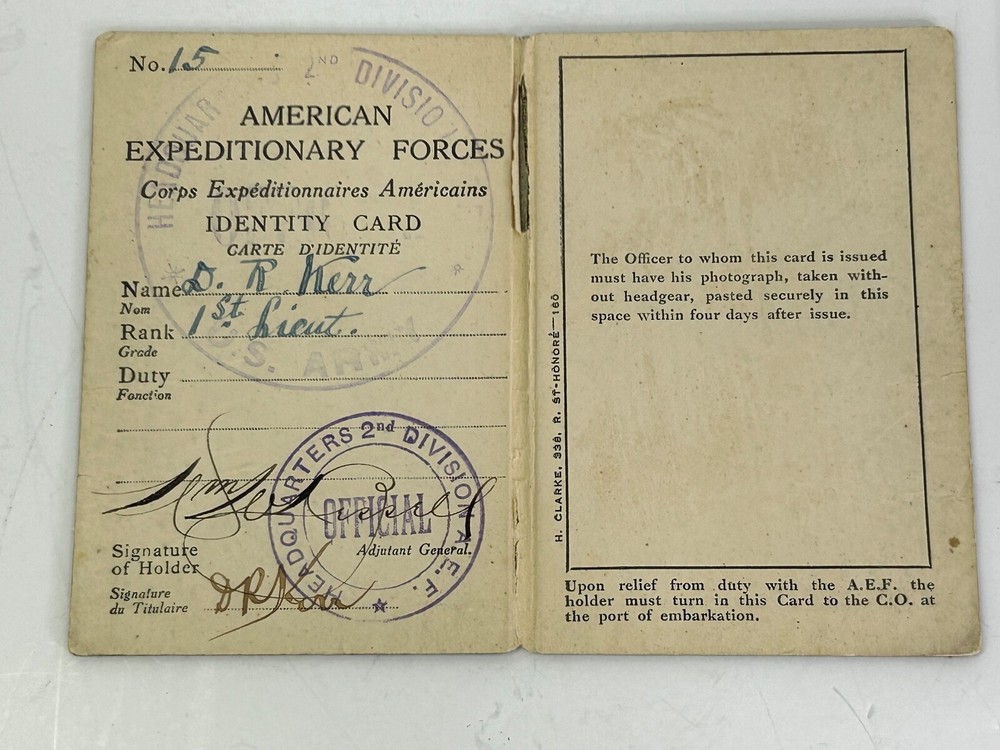 No. 15
HEADQUARTERS 2ND DIVISION
U.S. ARMY
AMERICAN
EXPEDITIONARY FORCES
Corps Expéditionnaires Américains
IDENTITY CARD
CARTE D'IDENTITÉ
Name D. R. Kerr
Nom
Rank 1st Lieut.
Grade
Duty
Fonction
HEADQUARTERS 2nd DIVISION A.E.F.
OFFICIAL
Adjutant General.
Signature
of Holder
Signature
du Titulaire
D R Kerr
The Officer to whom this card is issued
must have his photograph, taken with-
out headgear, pasted securely in this
space within four days after issue.
H. CLARKE, 338, R. ST-HONORÉ—160
Upon relief from duty with the A.E.F. the
holder must turn in this Card to the C.O. at
the port of embarkation.